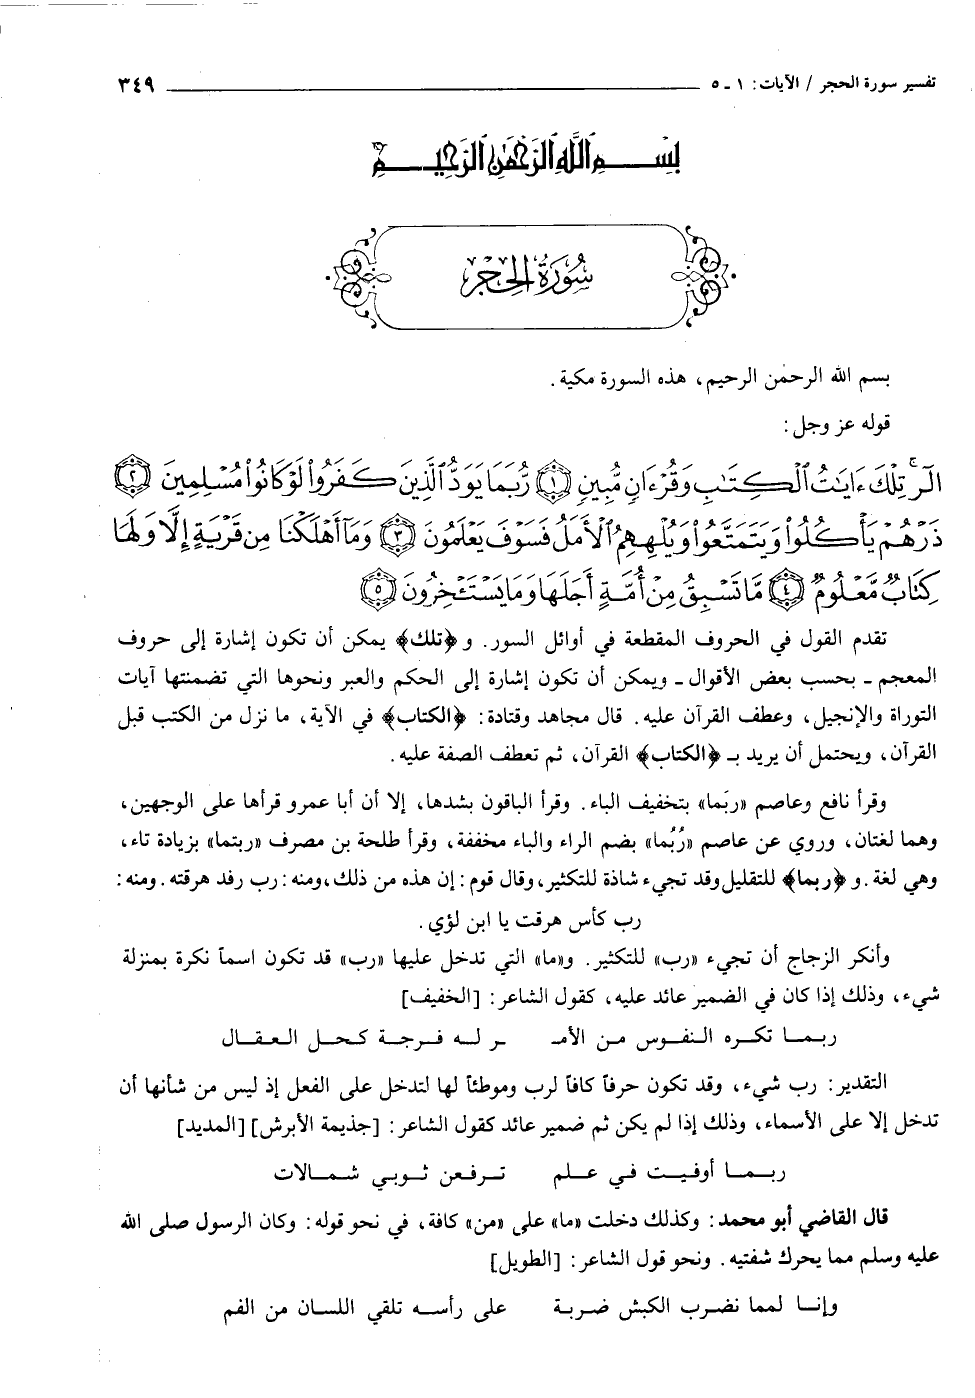 تفسير سورة الحجر / الآيات: ١ ـ ٥ ٣٤٩
بسم الله الرحمن الرحيم
سورة الحجر
بسم الله الرحمٰن الرحيم، هذه السورة مكية.
قوله عز وجل:
الٓرۚ تِلۡكَ ءَايَٰتُ ٱلۡكِتَٰبِ وَقُرۡءَانٖ مُّبِينٖ ١ رُّبَمَا يَوَدُّ ٱلَّذِينَ كَفَرُواْ لَوۡ كَانُواْ مُسۡلِمِينَ ٢
ذَرۡهُمۡ يَأۡكُلُواْ وَيَتَمَتَّعُواْ وَيُلۡهِهِمُ ٱلۡأَمَلُ فَسَوۡفَ يَعۡلَمُونَ ٣ وَمَآ أَهۡلَكۡنَا مِن قَرۡيَةٍ إِلَّا وَلَهَا
كِتَابٞ مَّعۡلُومٞ ٤ مَّا تَسۡبِقُ مِنۡ أُمَّةٍ أَجَلَهَا وَمَا يَسۡتَـٔۡخِرُونَ ٥
تقدم القول في الحروف المقطعة في أوائل السور. و ﴿تلك﴾ يمكن أن تكون إشارة إلى حروف
المعجم ـ بحسب بعض الأقوال ـ ويمكن أن تكون إشارة إلى الحكم والعبر ونحوها التي تضمنتها آيات
التوراة والإنجيل، وعطف القرآن عليه. قال مجاهد وقتادة: ﴿الكتاب﴾ في الآية، ما نزل من الكتب قبل
القرآن، ويحتمل أن يريد بـ ﴿الكتاب﴾ القرآن، ثم تعطف الصفة عليه.
وقرأ نافع وعاصم «ربَما» بتخفيف الباء. وقرأ الباقون بشدها، إلا أن أبا عمرو قرأها على الوجهين،
وهما لغتان، وروي عن عاصم «رُبُما» بضم الراء والباء مخففة، وقرأ طلحة بن مصرف «ربتما» بزيادة تاء،
وهي لغة. و ﴿ربما﴾ للتقليل وقد تجيء شاذة للتكثير، وقال قوم: إن هذه من ذلك، ومنه: رب رفد هرقته. ومنه:
رب كأس هرقت يا ابن لؤي.
وأنكر الزجاج أن تجيء «رب» للتكثير. و«ما» التي تدخل عليها «رب» قد تكون اسماً نكرة بمنزلة
شيء، وذلك إذا كان في الضمير عائد عليه، كقول الشاعر: [الخفيف]
ربـمـا تكـره النفـوس مـن الأمـ ـر لـه فـرجـة كـحـل الـعـقـال
التقدير: رب شيء، وقد تكون حرفاً كافاً لرب وموطئاً لها لتدخل على الفعل إذ ليس من شأنها أن
تدخل إلا على الأسماء، وذلك إذا لم يكن ثم ضمير عائد كقول الشاعر: [جذيمة الأبرش] [المديد]
ربـمـا أوفيـت فـي علـم تـرفعـن ثـوبـي شمـالات
قال القاضي أبو محمد: وكذلك دخلت «ما» على «من» كافة، في نحو قوله: وكان الرسول صلى الله
عليه وسلم مما يحرك شفتيه. ونحو قول الشاعر: [الطويل]
وإنـا لمما نضـرب الكبش ضـربـة على رأسـه تلقي اللسان من الفم